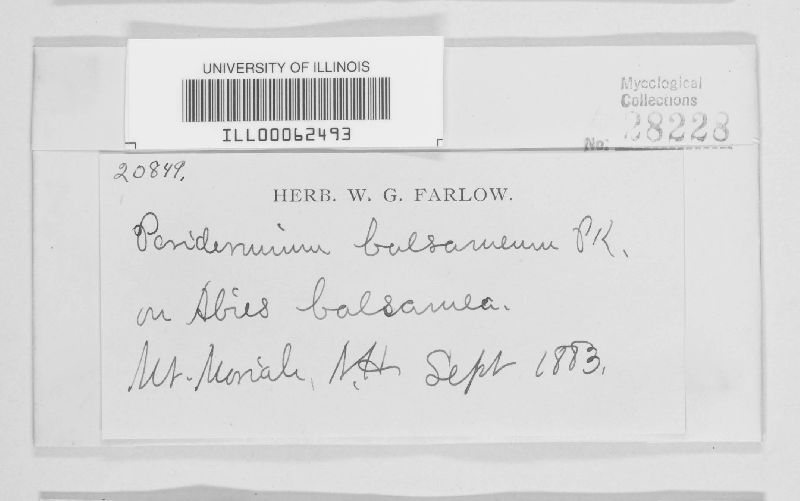 UNIVERSITY OF ILLINOIS
ILL00062493
Mycological
Collections
No: 28228
20849.
HERB. W. G. FARLOW.
Peridermium balsameum PK.
on Abies balsamea.
Mt. Moriah, N.H. Sept 1883.